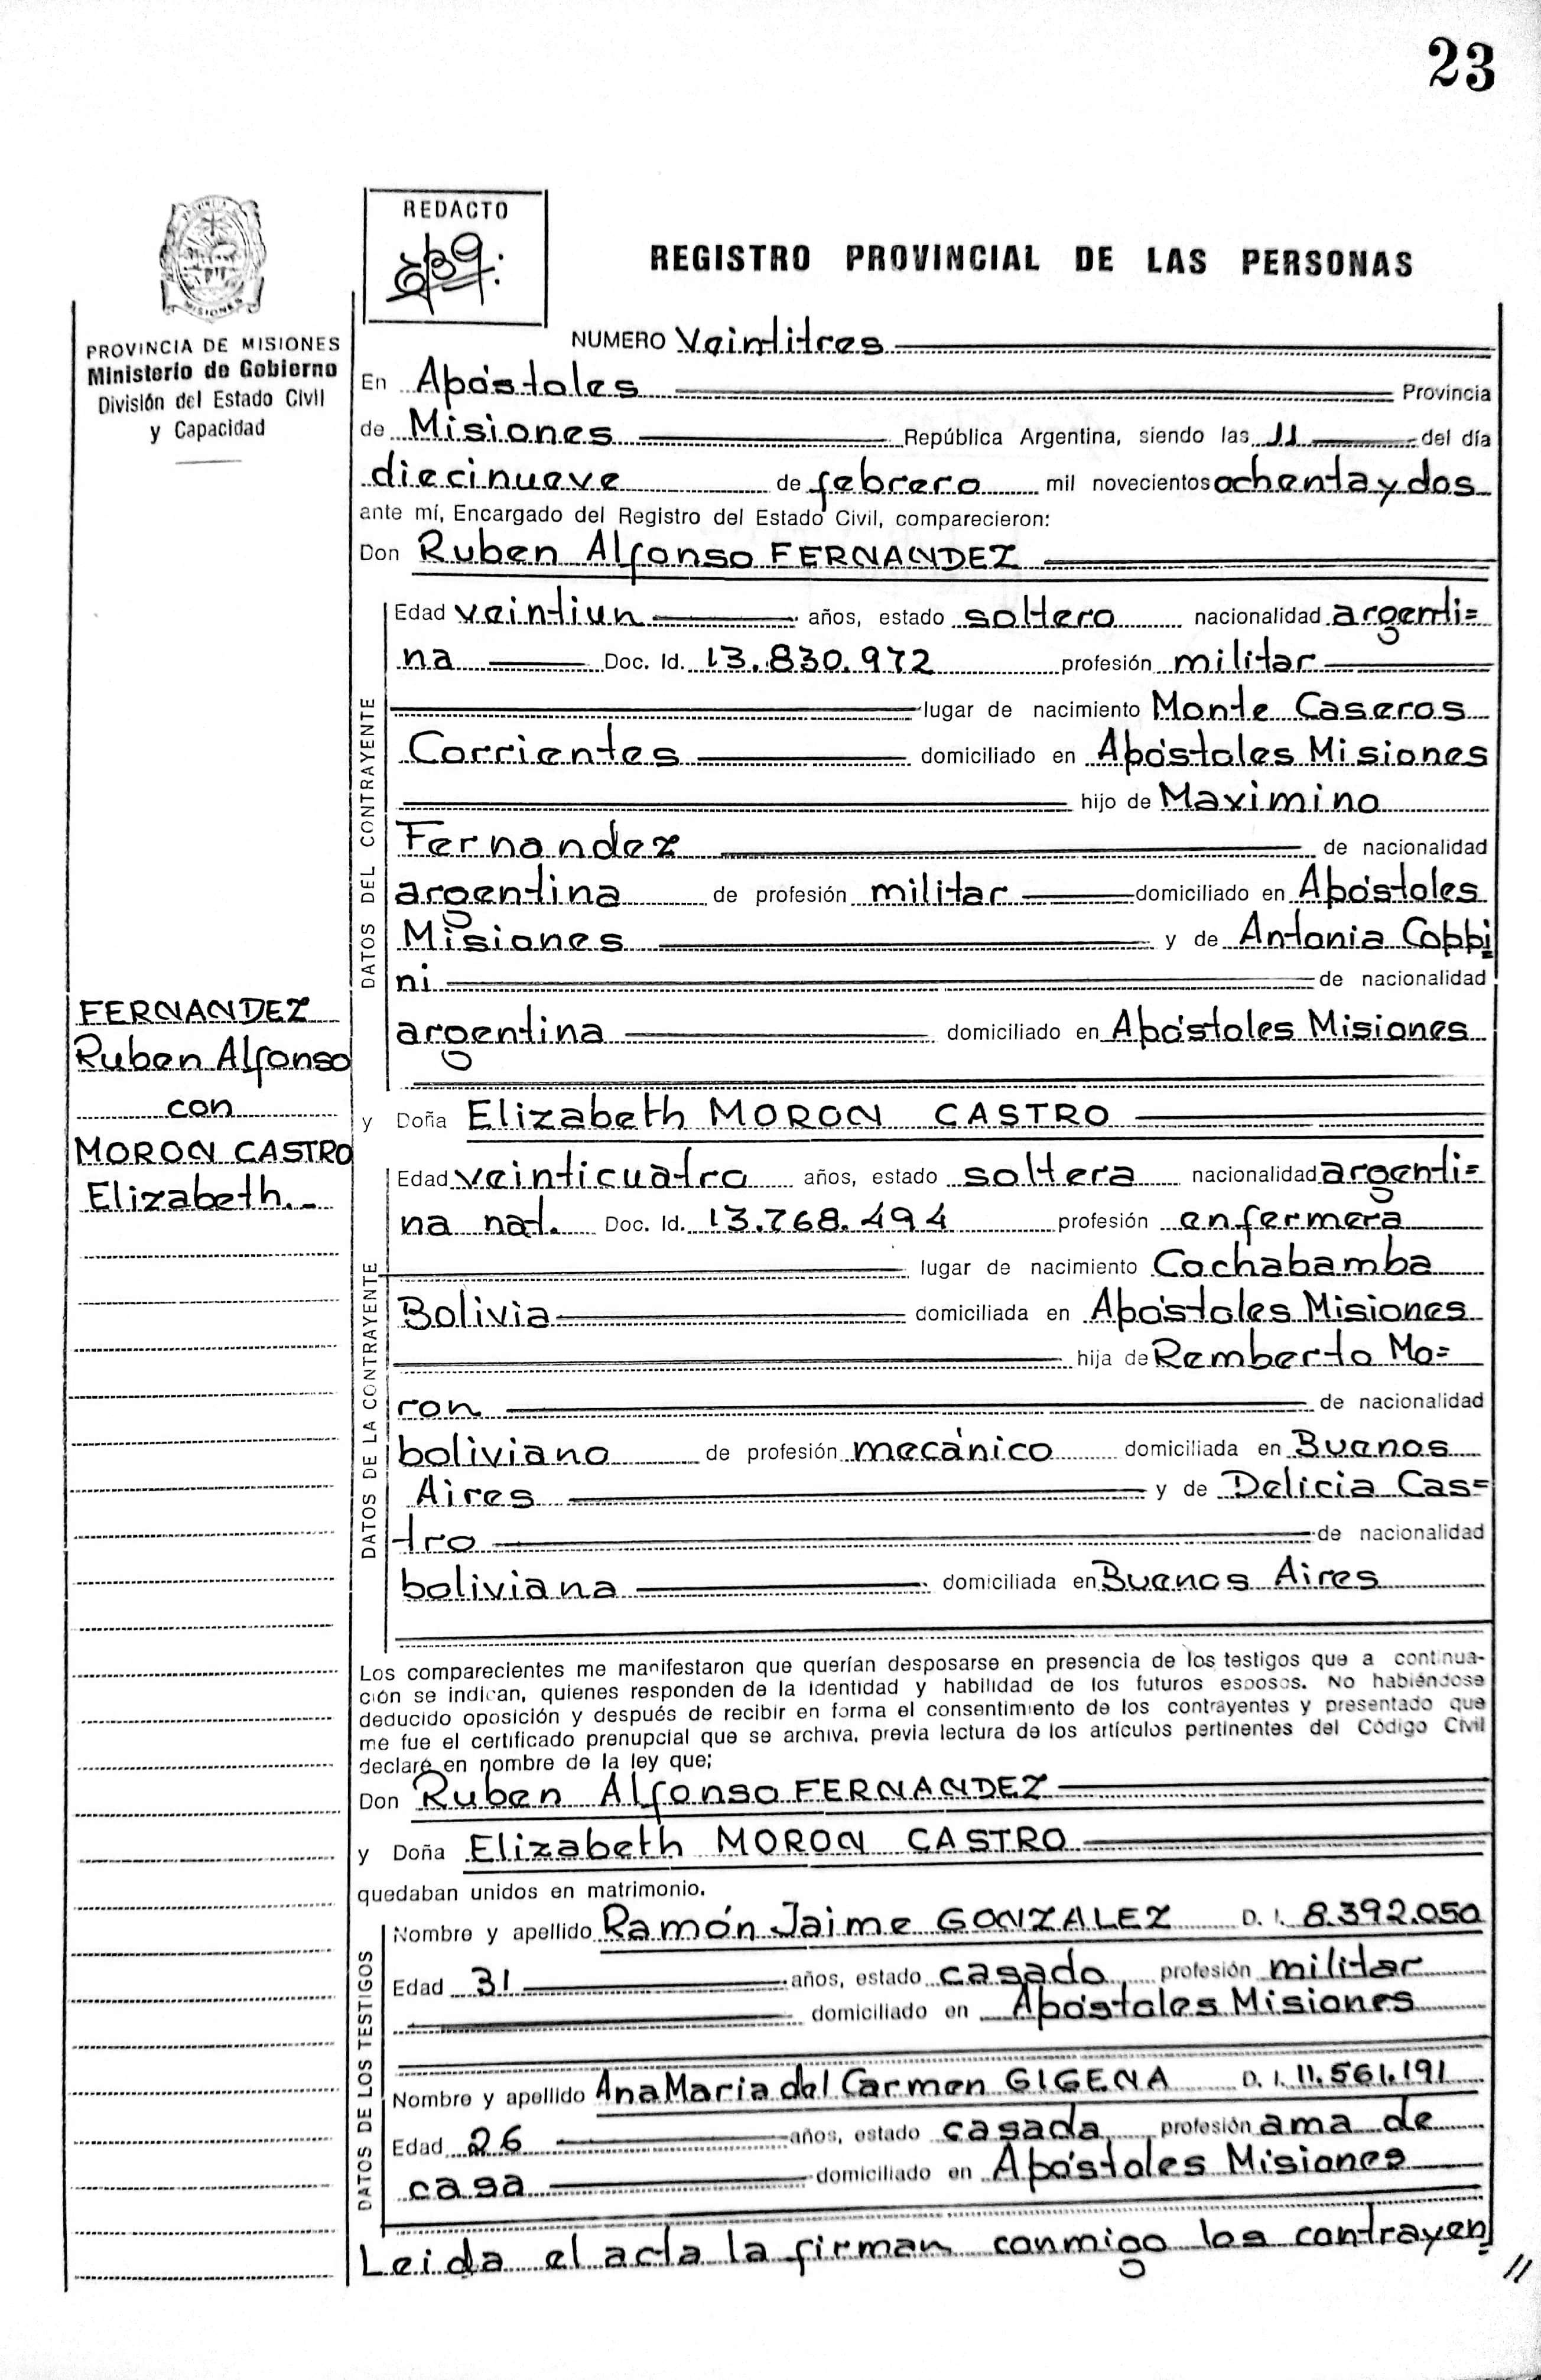 23
REDACTO
REGISTRO PROVINCIAL DE LAS PERSONAS
MISIONES
PROVINCIA DE MISIONES
Ministerio de Gobierno
División del Estado Civil
y Capacidad
NUMERO Veintitres
En Apóstoles Provincia
de Misiones República Argentina, siendo las 11 del día
diecinueve de febrero mil novecientos ochenta y dos
ante mí, Encargado del Registro del Estado Civil, comparecieron:
Don Ruben Alfonso FERNANDEZ
DATOS DEL CONTRAYENTE
Edad veintiun años, estado soltero nacionalidad argenti=
na Doc. Id. 13.830.972 profesión militar
lugar de nacimiento Monte Caseros
Corrientes domiciliado en Apóstoles Misiones
hijo de Maximino
Fernandez de nacionalidad
argentina de profesión militar domiciliado en Apóstoles
Misiones y de Antonia Coppi=
ni de nacionalidad
argentina domiciliado en Apóstoles Misiones
FERNANDEZ
Ruben Alfonso
con
MORON CASTRO
Elizabeth.-
y Doña Elizabeth MORON CASTRO
DATOS DE LA CONTRAYENTE
Edad veinticuatro años, estado soltera nacionalidad argenti=
na nat. Doc. Id. 13.768.494 profesión enfermera
lugar de nacimiento Cochabamba
Bolivia domiciliada en Apóstoles Misiones
hija de Remberto Mo=
ron de nacionalidad
boliviano de profesión mecánico domiciliada en Buenos
Aires y de Delicia Cas=
tro de nacionalidad
boliviana domiciliada en Buenos Aires
Los comparecientes me manifestaron que querían desposarse en presencia de los testigos que a continua-
ción se indican, quienes responden de la identidad y habilidad de los futuros esposos. No habiéndose
deducido oposición y después de recibir en forma el consentimiento de los contrayentes y presentado que
me fue el certificado prenupcial que se archiva, previa lectura de los artículos pertinentes del Código Civil
declaré en nombre de la ley que;
Don Ruben Alfonso FERNANDEZ
y Doña Elizabeth MORON CASTRO
quedaban unidos en matrimonio.
DATOS DE LOS TESTIGOS
Nombre y apellido Ramón Jaime GONZALEZ D. I. 8.392.050
Edad 31 años, estado casado profesión militar
domiciliado en Apóstoles Misiones
Nombre y apellido Ana Maria del Carmen GIGENA D. I. 11.561.191
Edad 26 años, estado casada profesión ama de
casa domiciliado en Apóstoles Misiones
Leida el acta la firman conmigo los contrayen=
//